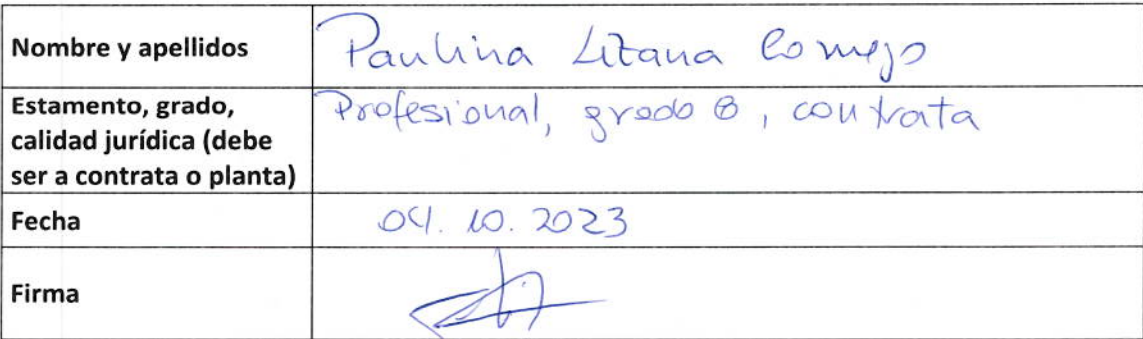 Nombre y apellidos
Paulina Lizana Cornejo
Estamento, grado,
calidad jurídica (debe
ser a contrata o planta)
Profesional, grado 8, contrata
Fecha
04. 10. 2023
Firma